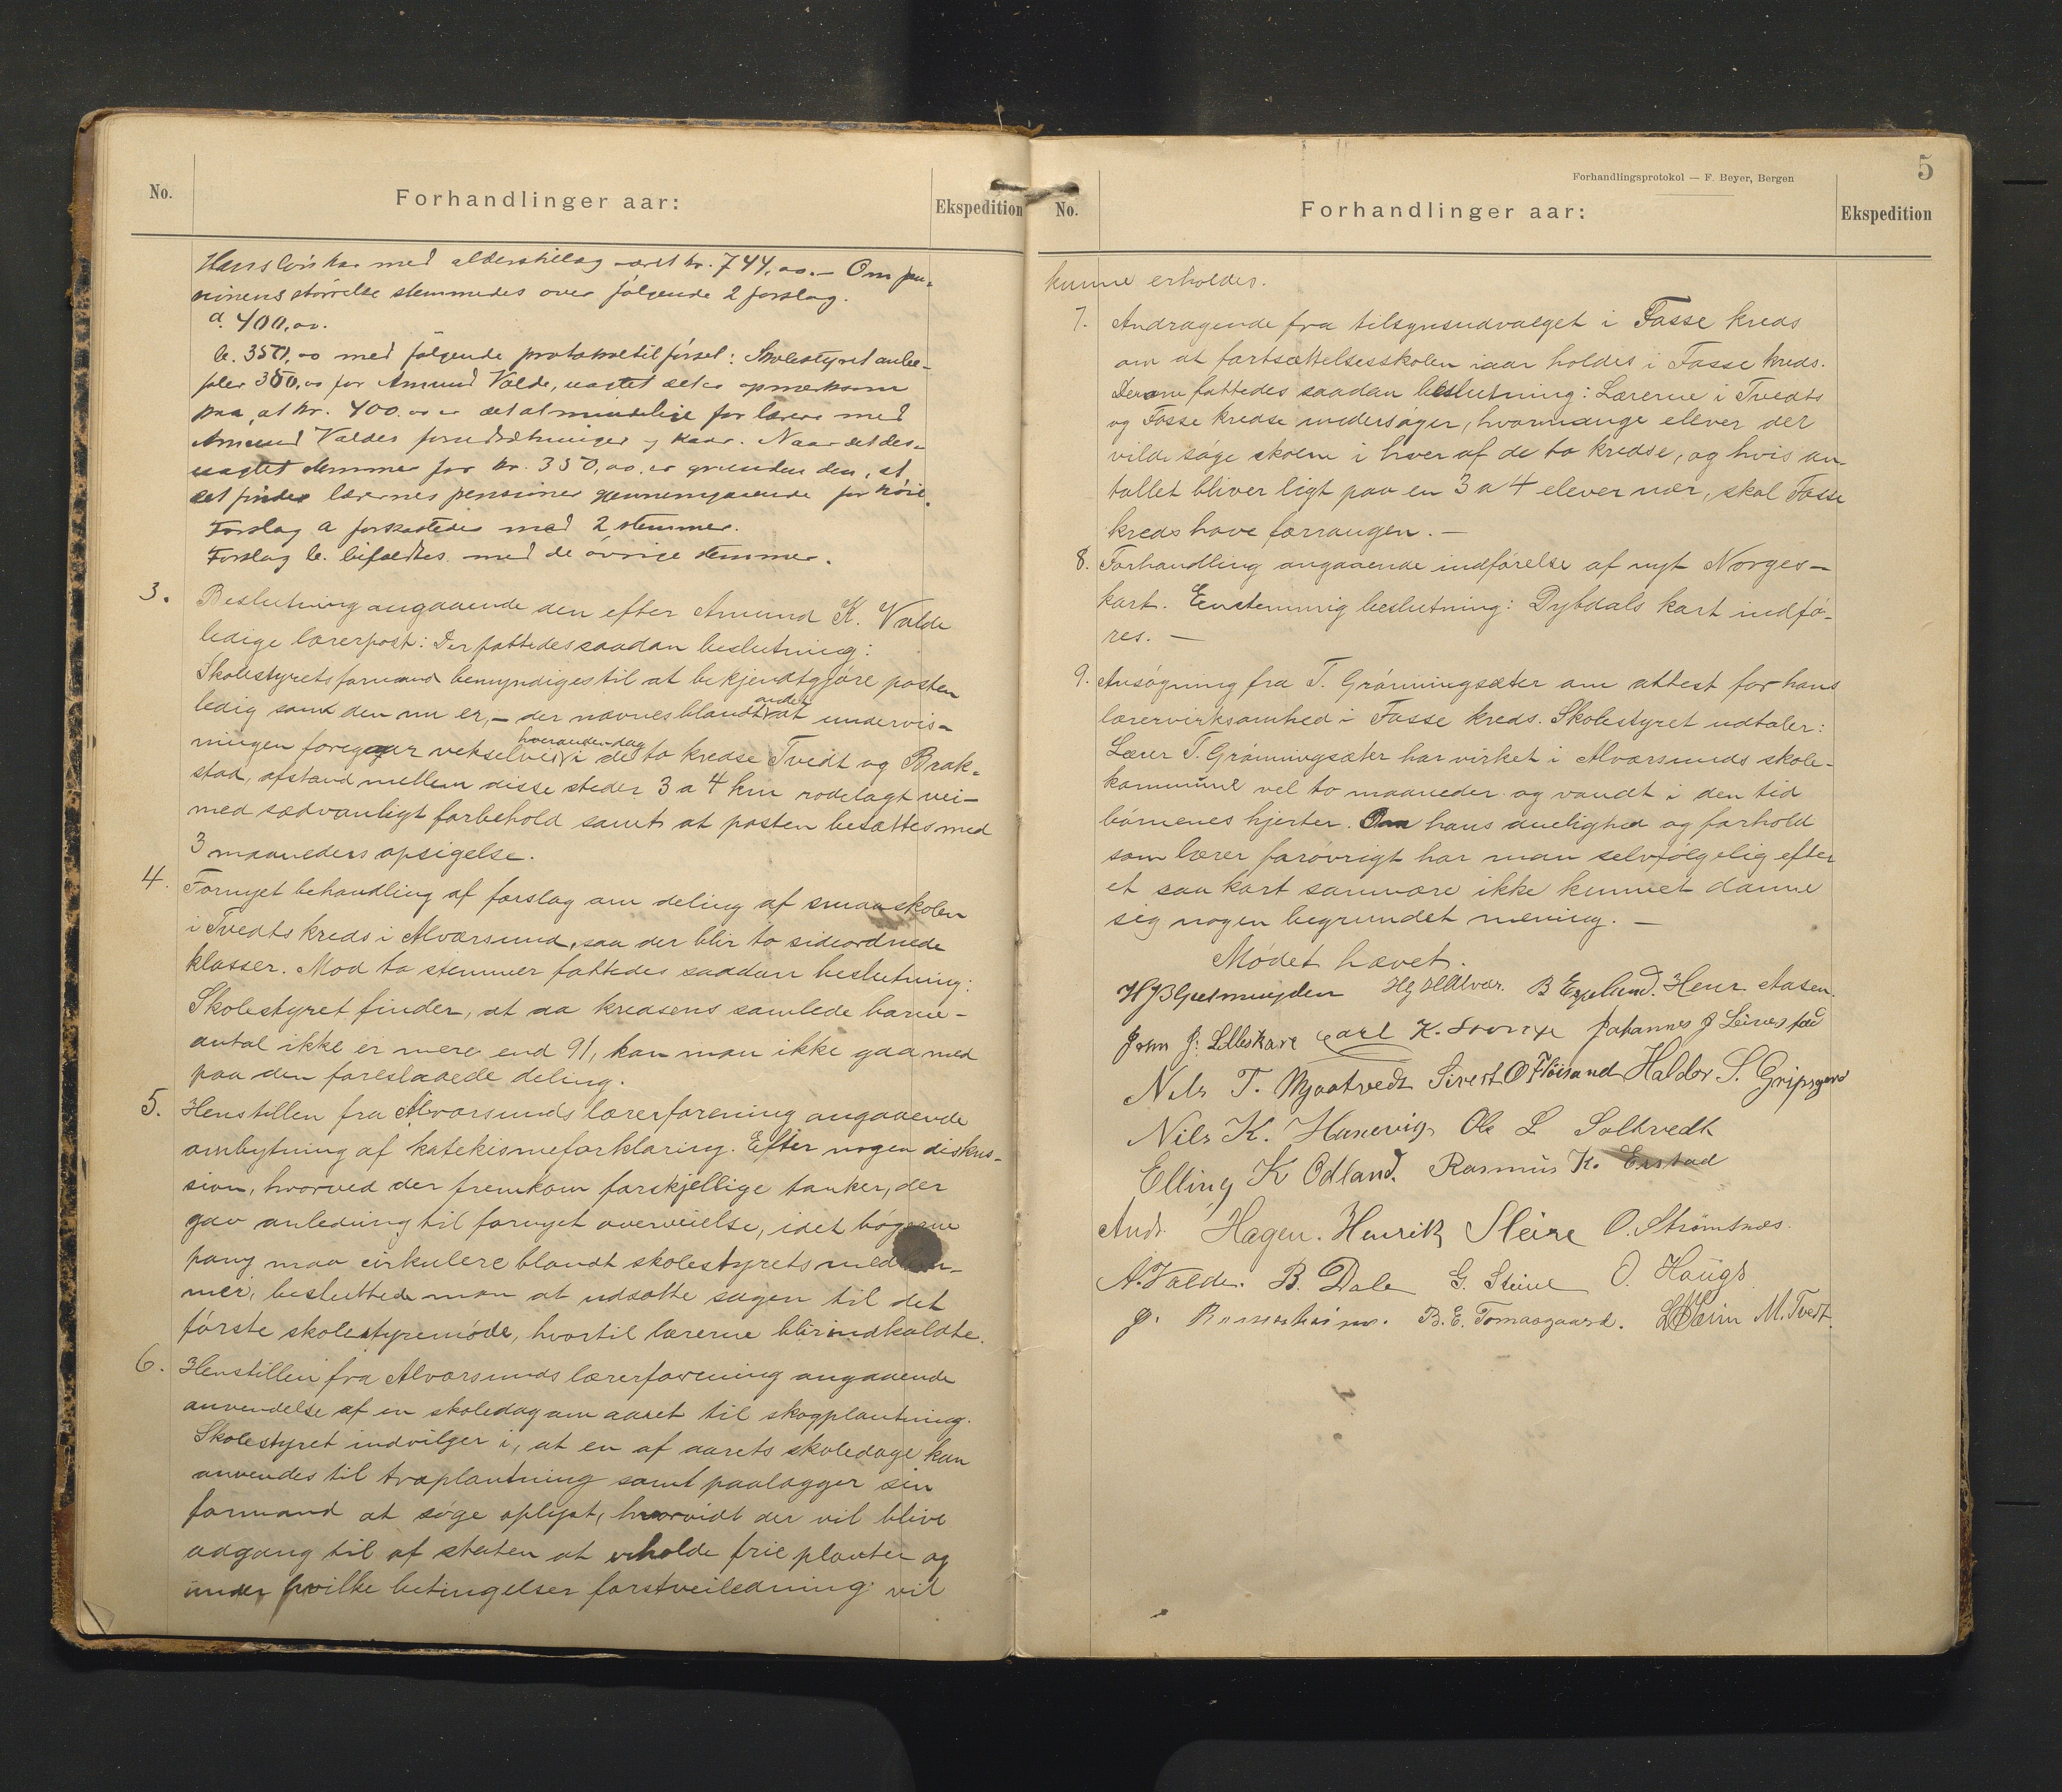 No.
Forhandlinger aar:
Ekspedition
Hans lön har med alderstillæg været kr. 744,00. — Om pen-
sionens störrelse stemmedes over fölgende 2 forslag.
a. 400,00.
b. 350,00 med fölgende protokoltilförsel: Skolestyret anbe-
faler 350,00 for Amund Valde, uagtet det er opmerksom
paa, at kr. 400.00 er det almindelige for lærere med
Amund Valdes forudsætninger og kaar. Naar det des-
uagtet stemmer for kr. 350,00, er grunden den, at
det finder lærernes pensioner gjennemgaaende for höie.
Forslag a forkastedes med 2 stemmer.
Forslag b. bifaldtes med de övrige stemmer.
3. Beslutning angaaende den efter Amund K. Valde
ledige lærerpost: Der fattedes saadan beslutning:
Skolestyrets formand bemyndiges til at bekjendtgjöre posten
ledig som den nu er, — der nævnes blandt andet at undervis-
ningen foregaar vekselvis hveranden dag i de to kredse Tvedt og Brak-
stad, afstand mellem disse steder 3 a 4 km rodelagt vei —
med sædvanligt forbehold samt at posten besættes med
3 maaneders opsigelse.
4. Fornyet behandling af forslag om deling af smaaskolen
i Tvedts kreds i Alværsund, saa der blir to sideordnede
klasser. Mod to stemmer fattedes saadan beslutning:
Skolestyret finder, at da kredsens samlede barne-
antal ikke er mere end 91, kan man ikke gaa med
paa den foreslaaede deling.
5. Henstillen fra Alværsunds lærerforening angaaende
ombytning af katekismeforklaring. Efter nogen diskus-
sion, hvorved der fremkom forskjellige tanker, der
gav anledning til fornyet overveielse, idet bögerne
paany maa cirkulere blandt skolestyrets medlem-
mer, besluttede man at udsætte sagen til det
förste skolestyremöde, hvortil lærerne blir indkaldte.
6. Henstillen fra Alværsunds lærerforening angaaende
anvendelse af en skoledag om aaret til skogplantning.
Skolestyret indvilger i, at en af aarets skoledage kan
anvendes til træplantning samt paalægger sin
formand at söge oplyst, hvorvidt der vil blive
adgang til af staten at erholde frie planter og
under hvilke betingelser forstveiledning vil
5
Forhandlingsprotokol — F. Beyer, Bergen
No.
Forhandlinger aar:
Ekspedition
kunne erholdes.
7. Andragende fra tilsynsudvalget i Fosse kreds
om at fortsættelsesskolen iaar holdes i Fosse kreds.
Derom fattedes saadan beslutning: Lærerne i Tvedts
og Fosse kredse undersöger, hvormange elever der
vilde söge skolen i hver af de to kredse, og hvis an-
tallet bliver ligt paa en 3 a 4 elever nær, skal Fosse
kreds have forrangen. —
8. Forhandling angaaende indförelse af nyt Norges-
kart. Eenstemmig beslutning: Dybdals kart indfö-
res. —
9. Ansögning fra T. Grönningsæter om attest for hans
lærervirksomhed i Fosse kreds. Skolestyret udtaler:
Lærer T. Grönningsæter har virket i Alværsunds skole-
kommune vel to maaneder og vandt i den tid
börnenes hjerter. Om hans duelighed og forhold
som lærer forövrigt har man selvfölgelig efter
et saa kort samvære ikke kunnet danne
sig nogen begrundet mening. —
Mödet hævet.
B Espelund. Henr. Aasen.
John J. Lilleskare Carl K. Johannes J Leirestad
Nils T. Mjaatvedt Sivert O Flöisand Haldor S. Gripsgard
Nils K. Hanevig Ole L Soltvedt
Elling K Odland. Rasmus K. Erstad
Andr. Hagen. Henrik Sleire O. Strömsnes.
A. Valde. B. Dale G. Steine O. Haugs
J. B. E. Tomasgaard. M. Tvedt.